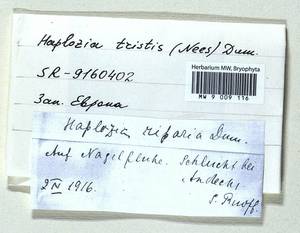 Haplozia tristis (Nees) Dum.
SR-9160402
Herbarium MW, Bryophyta
MW 9 009 116
Зап. Европа
Haplozia riparia Dum.
Auf Nagelfluhe. Schlucht bei
Andechs
2 IV 1916.
S. Ruoff.